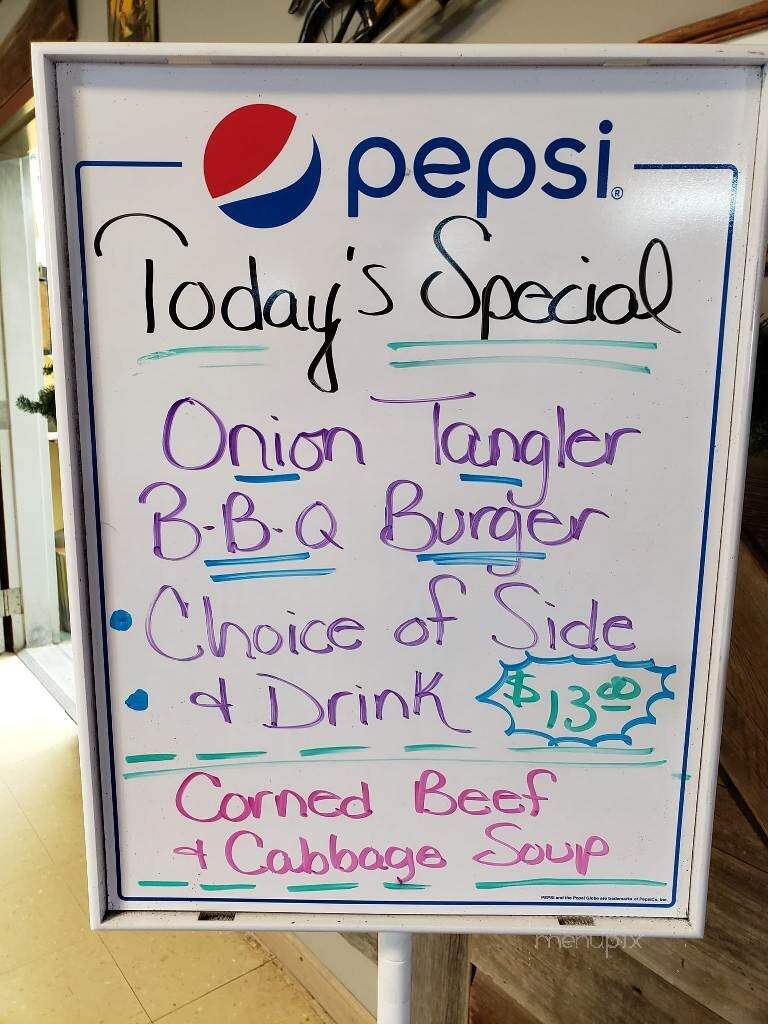 pepsi®
Today's Special
Onion Tangler
B-B-Q Burger
• Choice of Side
• & Drink $13.00
Corned Beef
& Cabbage Soup
PEPSI and the Pepsi Globe are trademarks of PepsiCo, Inc.
menupix